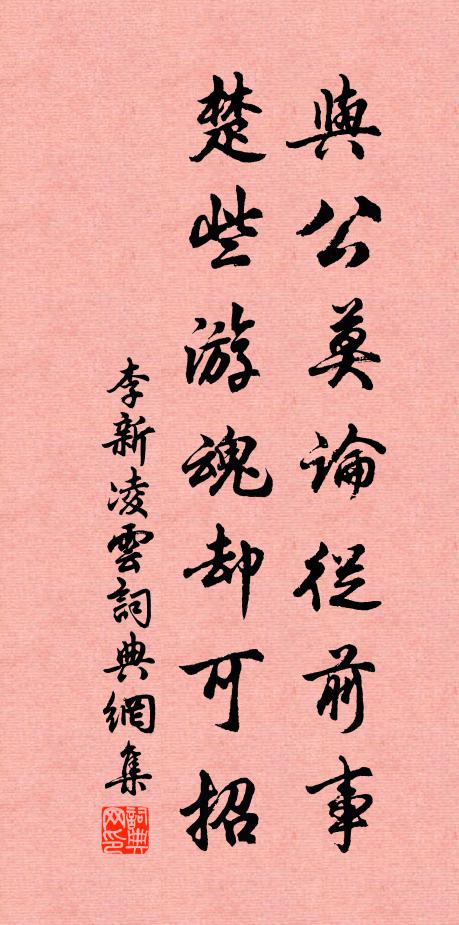 與公莫論從前事
楚些游魂却可招
李新凌雲詞典網集
詞典网印